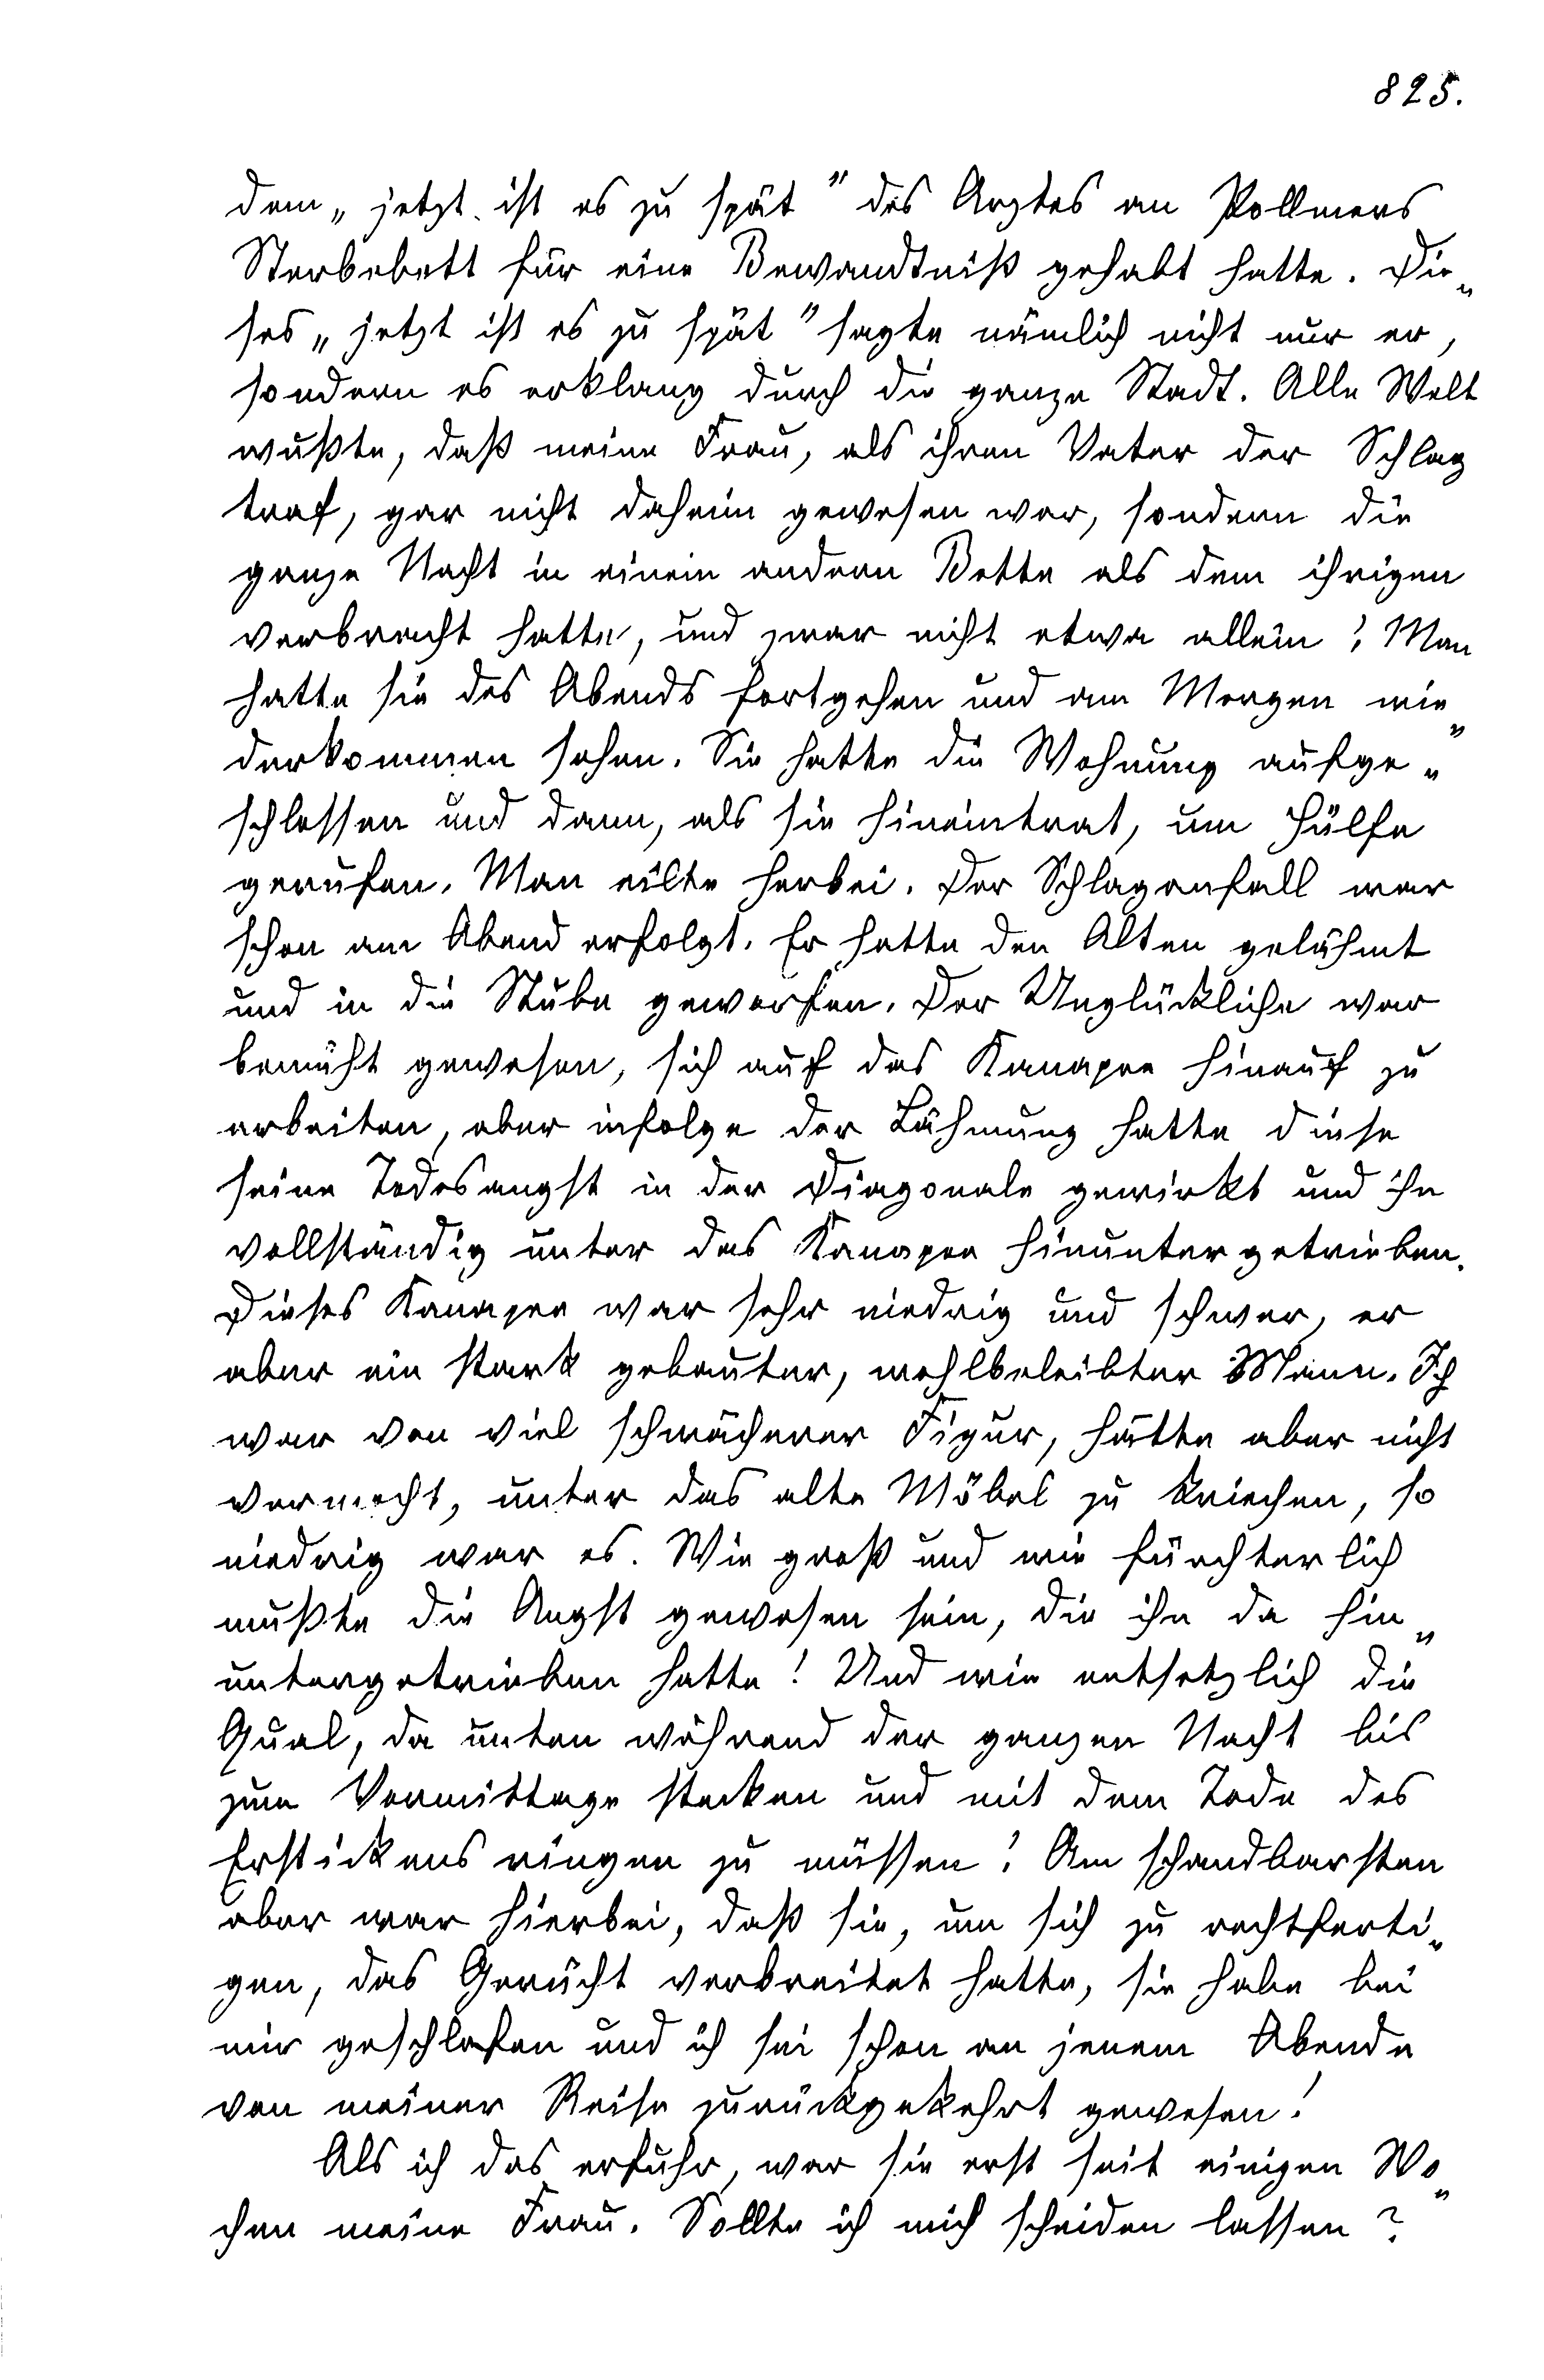 825.
dem „jetzt ist es zu spät” des Arztes an Pollmers
Sterbebett für eine Bewandtniß gehabt hatte. Die„
ses „jetzt ist es zu spät” sagte nämlich nicht nur er,
sondern es erklang durch die ganze Stadt. Alle Welt
wußte, daß meine Frau, als ihren Vater der Schlag
traf, gar nicht daheim gewesen war, sondern die
ganze Nacht in einem andern Bette als dem ihrigen
verbracht hatte, und zwar nicht etwa allein! Man
hatte sie des Abends fortgehen und am Morgen wie„
derkommen sehen. Sie hatte die Wohnung aufge„
schlossen und dann, als sie hineintrat, um Hülfe
gerufen. Man eilte herbei. Der Schlaganfall war
schon am Abend erfolgt. Er hatte den Alten gelähmt
und in die Stube geworfen. Der Unglückliche war
bemüht gewesen, sich auf das Kanapee hinauf zu
arbeiten, aber infolge der Lähmung hatte diese
seine Todesangst in der Diagonale gewirkt und ihn
vollständig unter das Kanapee hinuntergetrieben.
Dieses Kanapee war sehr niedrig und schwer, er
aber ein stark gebauter, wohlbeleibter Mann. Ich
war von viel schwächerer Figur, hätte aber nicht
vermocht, unter das alte Möbel zu kriechen, so
niedrig war es. Wie groß und wie fürchterlich
mußte die Angst gewesen sein, die ihn da hin„
untergetrieben hatte! Und wie entsetzlich die
Qual, da unten während der ganzen Nacht bis
zum Vormittage stecken und mit dem Tode des
Erstickens ringen zu müssen! Am schandbarsten
aber war hierbei, daß sie, um sich zu rechtferti„
gen, das Gerücht verbreitet hatte, sie habe bei
mir geschlafen und ich sei schon an jenem Abende
von meiner Reise zurückgekehrt gewesen!
Als ich das erfuhr, war sie erst seit einigen Wo„
chen meine Frau. Sollte ich mich scheiden lassen?